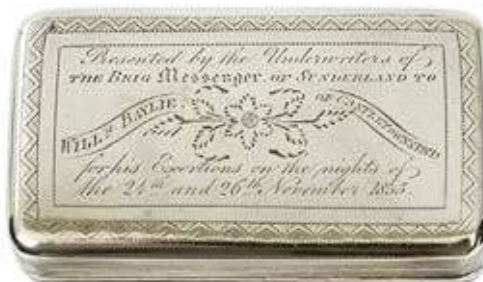 Presented by the Underwriters of
THE BRIG Messenger, OF SUNDERLAND TO
WILL.M BAYLIE OF
for his Exertions on the nights of
the 24th and 26th November 1833.